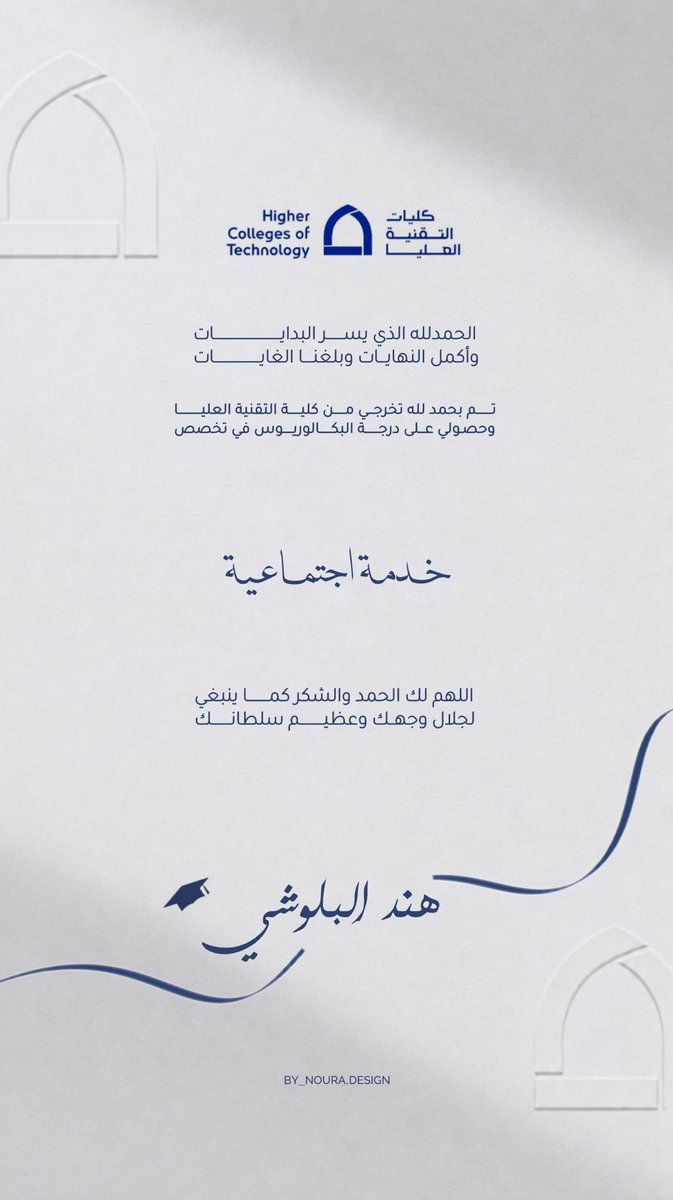 Higher
Colleges of
Technology
كليات
التقنية
العليا
الحمدلله الذي يسر البدايات
وأكمل النهايات وبلغنا الغايات
تم بحمد لله تخرجي من كلية التقنية العليا
وحصولي على درجة البكالوريوس في تخصص
خدمة اجتماعية
اللهم لك الحمد والشكر كما ينبغي
لجلال وجهك وعظيم سلطانك
هند البلوشي
BY_NOURA.DESIGN